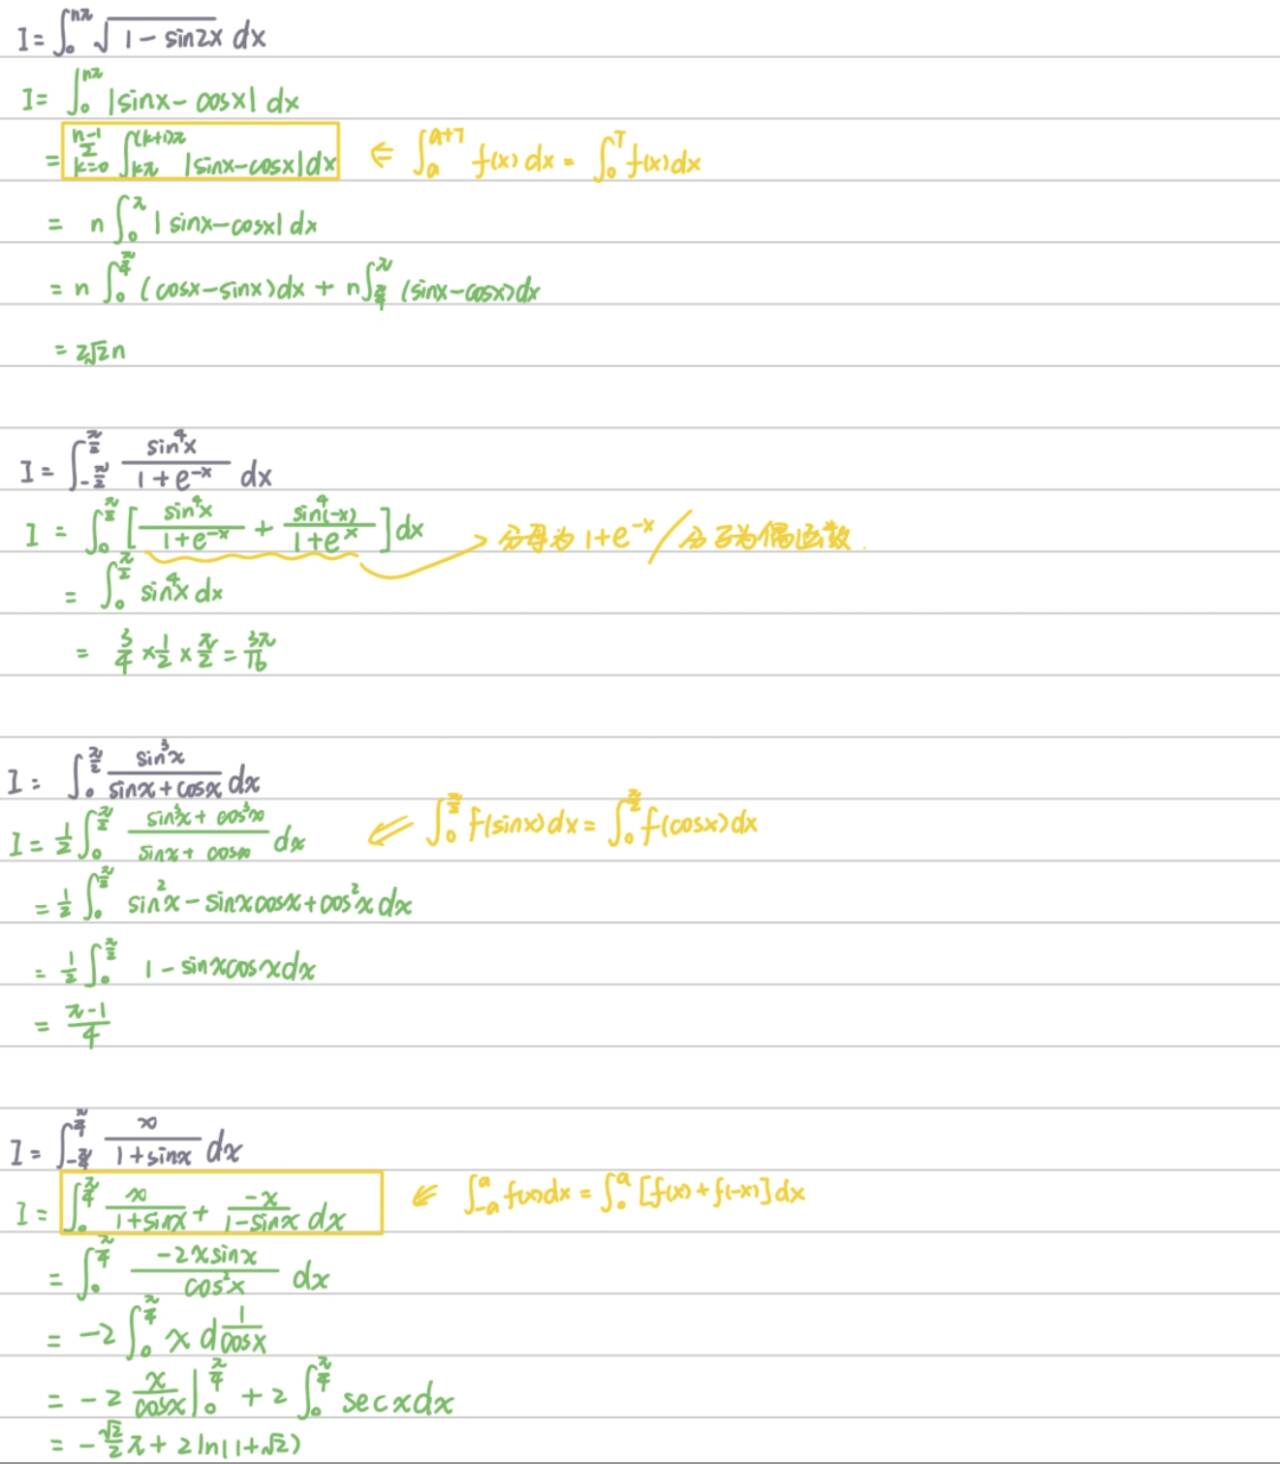 I = ∫₀^{nπ} √(1 - sin2x) dx
I = ∫₀^{nπ} |sinx - cosx| dx
= Σ_{k=0}^{n-1} ∫_{kπ}^{(k+1)π} |sinx-cosx| dx ⇐ ∫_a^{a+T} f(x) dx = ∫₀^T f(x) dx
= n ∫₀^π |sinx-cosx| dx
= n ∫₀^{π/4} (cosx-sinx) dx + n ∫_{π/4}^π (sinx-cosx) dx
= 2√2 n
I = ∫_{-π/2}^{π/2} sin⁴x / (1+e^{-x}) dx
I = ∫₀^{π/2} [ sin⁴x / (1+e^{-x}) + sin⁴(-x) / (1+e^x) ] dx → 分母为 1+e^{-x} / 分子为偶函数.
= ∫₀^{π/2} sin⁴x dx
= 3/4 × 1/2 × π/2 = 3π/16
I = ∫₀^{π/2} sin³x / (sinx+cosx) dx
I = 1/2 ∫₀^{π/2} (sin³x + cos³x) / (sinx + cosx) dx ⇐ ∫₀^{π/2} f(sinx) dx = ∫₀^{π/2} f(cosx) dx
= 1/2 ∫₀^{π/2} sin²x - sinxcosx + cos²x dx
= 1/2 ∫₀^{π/2} 1 - sinxcosx dx
= (π-1)/4
I = ∫_{-π/4}^{π/4} x / (1+sinx) dx
I = ∫₀^{π/4} x / (1+sinx) + -x / (1-sinx) dx ⇐ ∫_{-a}^a f(x) dx = ∫₀^a [f(x) + f(-x)] dx
= ∫₀^{π/4} -2xsinx / cos²x dx
= -2 ∫₀^{π/4} x d 1/cosx
= -2 x/cosx |₀^{π/4} + 2 ∫₀^{π/4} secx dx
= -√2/2 π + 2ln(1+√2)